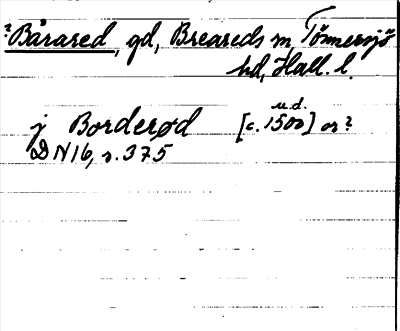 ? Bårared, gd, Breareds sn, Tönnersjö
hd, Hall. l.
j Borderød [c. 1500] or?
u.d.
DN16, s. 375